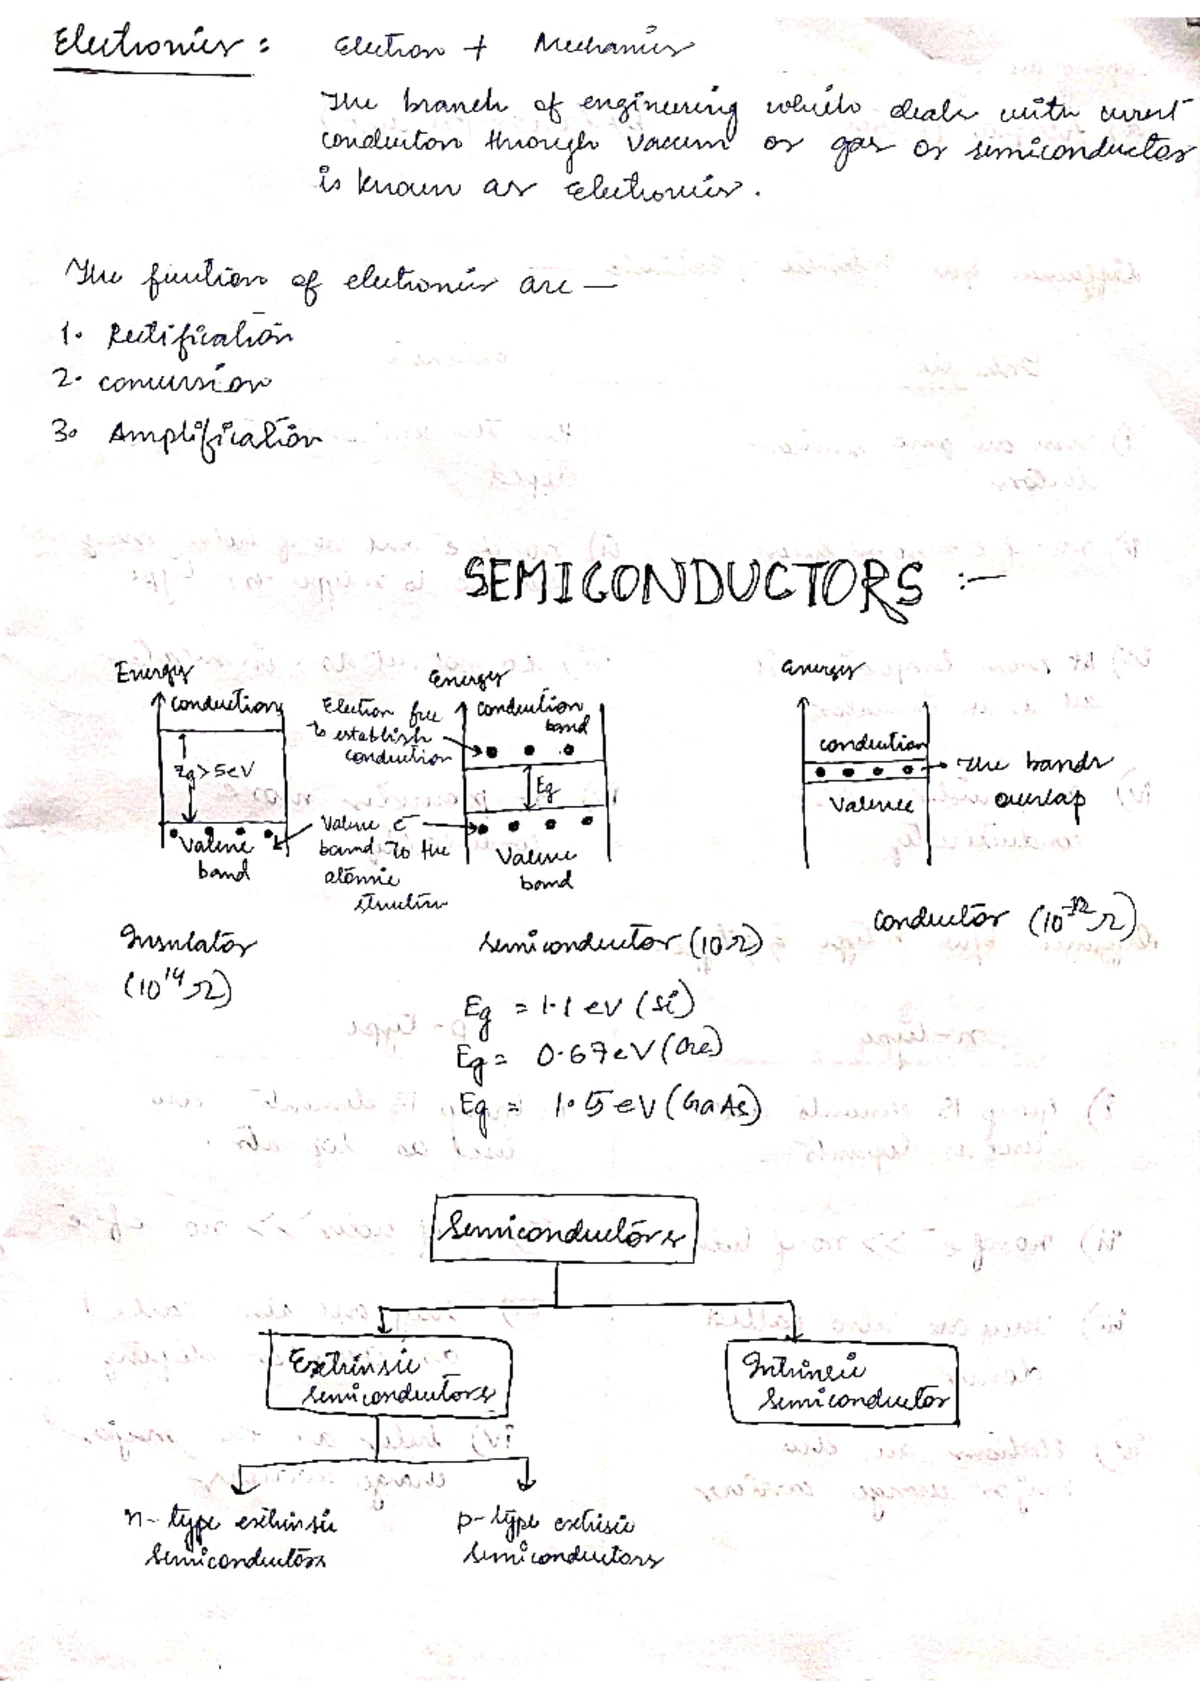 Electronics : Electron + Mechanics
The branch of engineering which deals with current
conduction through vaccum or gas or semiconductor
is known as Electronics.
The function of electronics are —
1. Rectification
2. conversion
3. Amplification
SEMICONDUCTORS :-
Energy
conduction
Eg > 5eV
Valence
band
Insulator
(10¹⁴Ω)
Election free
to establish
conduction
Valence e⁻
bound to the
atomic
structure
Energy
conduction
band
Eg
Valence
band
Semiconductor (10Ω)
Eg = 1.1 eV (Si)
Eg = 0.67eV (Ge)
Eg = 1.5 eV (GaAs)
Energy
conduction
Valence
The bands
overlap
conductor
Semiconductors
Extrinsic
semiconductors
Intrinsic
Semiconductor
n-type extrinsic
Semiconductors
p-type extrisic
Semiconductors